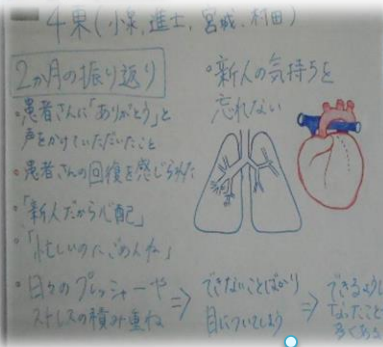 4東(小泉,進士,宮城,村田)
2か月の振り返り
・患者さんに「ありがとう」と
声をかけていただいたこと
・患者さんの回復を感じられた
・「新人だから心配」
・「忙しいのにごめんね」
・日々のプレッシャーや
ストレスの積み重ね
⇒ できないことばかり
目についてしまう
⇒ できるように
なったことも
多くある
・新人の気持ちを
忘れない